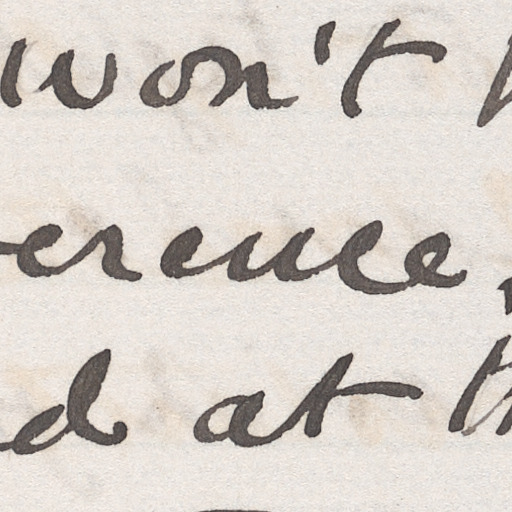 won't
erence,
d at th